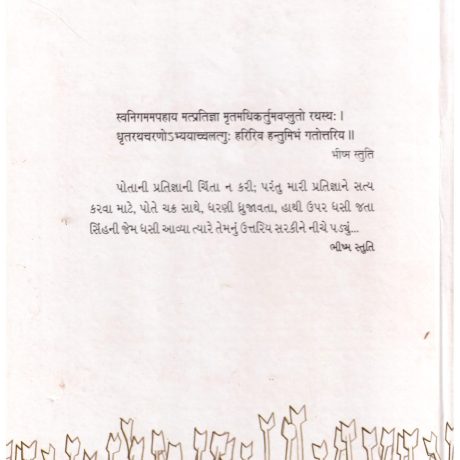 स्वनिगममपहाय मत्प्रतिज्ञा मृतमधिकर्तुमवप्लुतो रथस्थः ।
धृतरथचरणोऽभ्ययाच्चलत्गुः हरिरिव हन्तुमिभं गतोत्तरिय ॥
भीष्म स्तुति
પોતાની પ્રતિજ્ઞાની ચિંતા ન કરી; પરંતુ મારી પ્રતિજ્ઞાને સત્ય
કરવા માટે, પોતે ચક્ર સાથે, ધરણી ધ્રુજાવતા, હાથી ઉપર ધસી જતા
સિંહની જેમ ધસી આવ્યા ત્યારે તેમનું ઉત્તરિય સરકીને નીચે પડ્યું...
ભીષ્મ સ્તુતિ